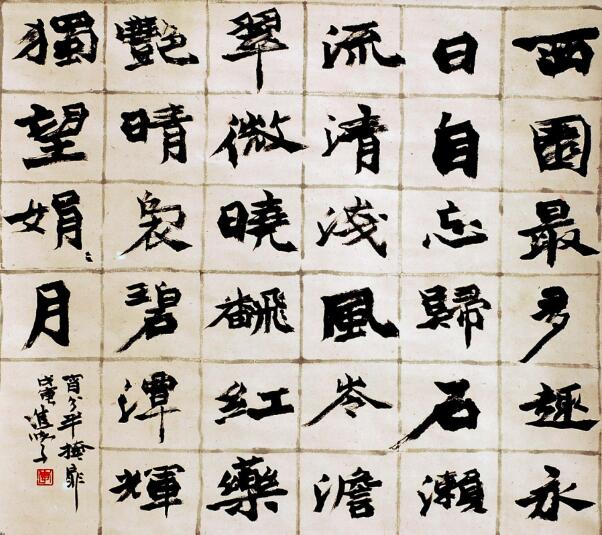 西園最多趣永
日自忘歸石瀨
流清淺風岑澹
翠微曉飜紅藥
艷晴裊碧潭輝
獨望娟月
宵分半掩扉
戊寅